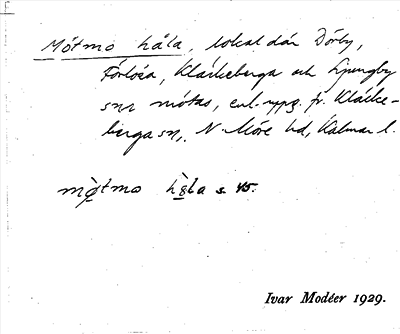 Mótmo håla, lokal där Dörby,
Förlösa, Kläckeberga och Ljungby
snr mötas, enl. uppg. fr. Kläcke-
berga sn, N. Möre hd, Kalmar l.
mo̱tmo håla s. 45.
Ivar Modéer 1929.